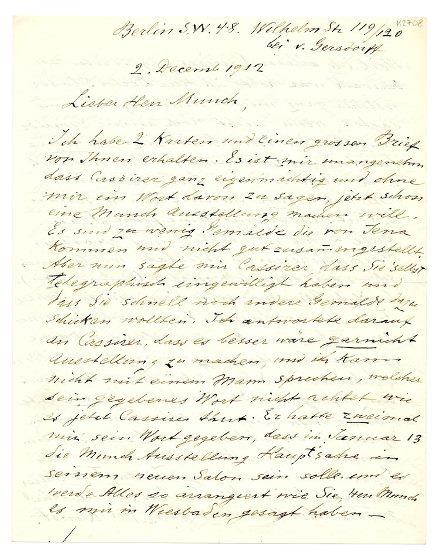 K2708
Berlin S.W. 48. Wilhelm Str 119/120
bei v. Gersdorff
2. Decemb 1912
Lieber Herr Munch,
Ich habe 2 Karten und einen grossen Brief
von Ihnen erhalten. Es ist mir unangenehm
dass Cassirer ganz eigenmächtig und ohne
mir ein Wort davon zu sagen, jetzt schon
eine Munch Ausstellung machen will.
Es sind zu wenig Gemälde die von Jena
kommen und nicht gut zusammgestellt.
Aber nun sagte mir Cassirer, dass Sie selbst
telegraphisch eingewilligt haben und
dass Sie schnell noch andere Gemälde dazu
schicken wollten. Ich antwortete darauf
an Cassirer, dass es besser wäre garnicht
Ausstellung zu machen, und ich kann
nicht mit einem Mann sprechen, welcher
sein gegebenes Wort nicht achtet wie
es jetzt Cassirer thut. Er hatte zweimal
mir sein Wort gegeben, dass im Januar 13
die Munch Ausstellung Hauptsache in
seinem neuen Salon sein solle und es
werde Alles so arrangiert wie Sie, Herr Munch
es mir in Wiesbaden gesagt haben —